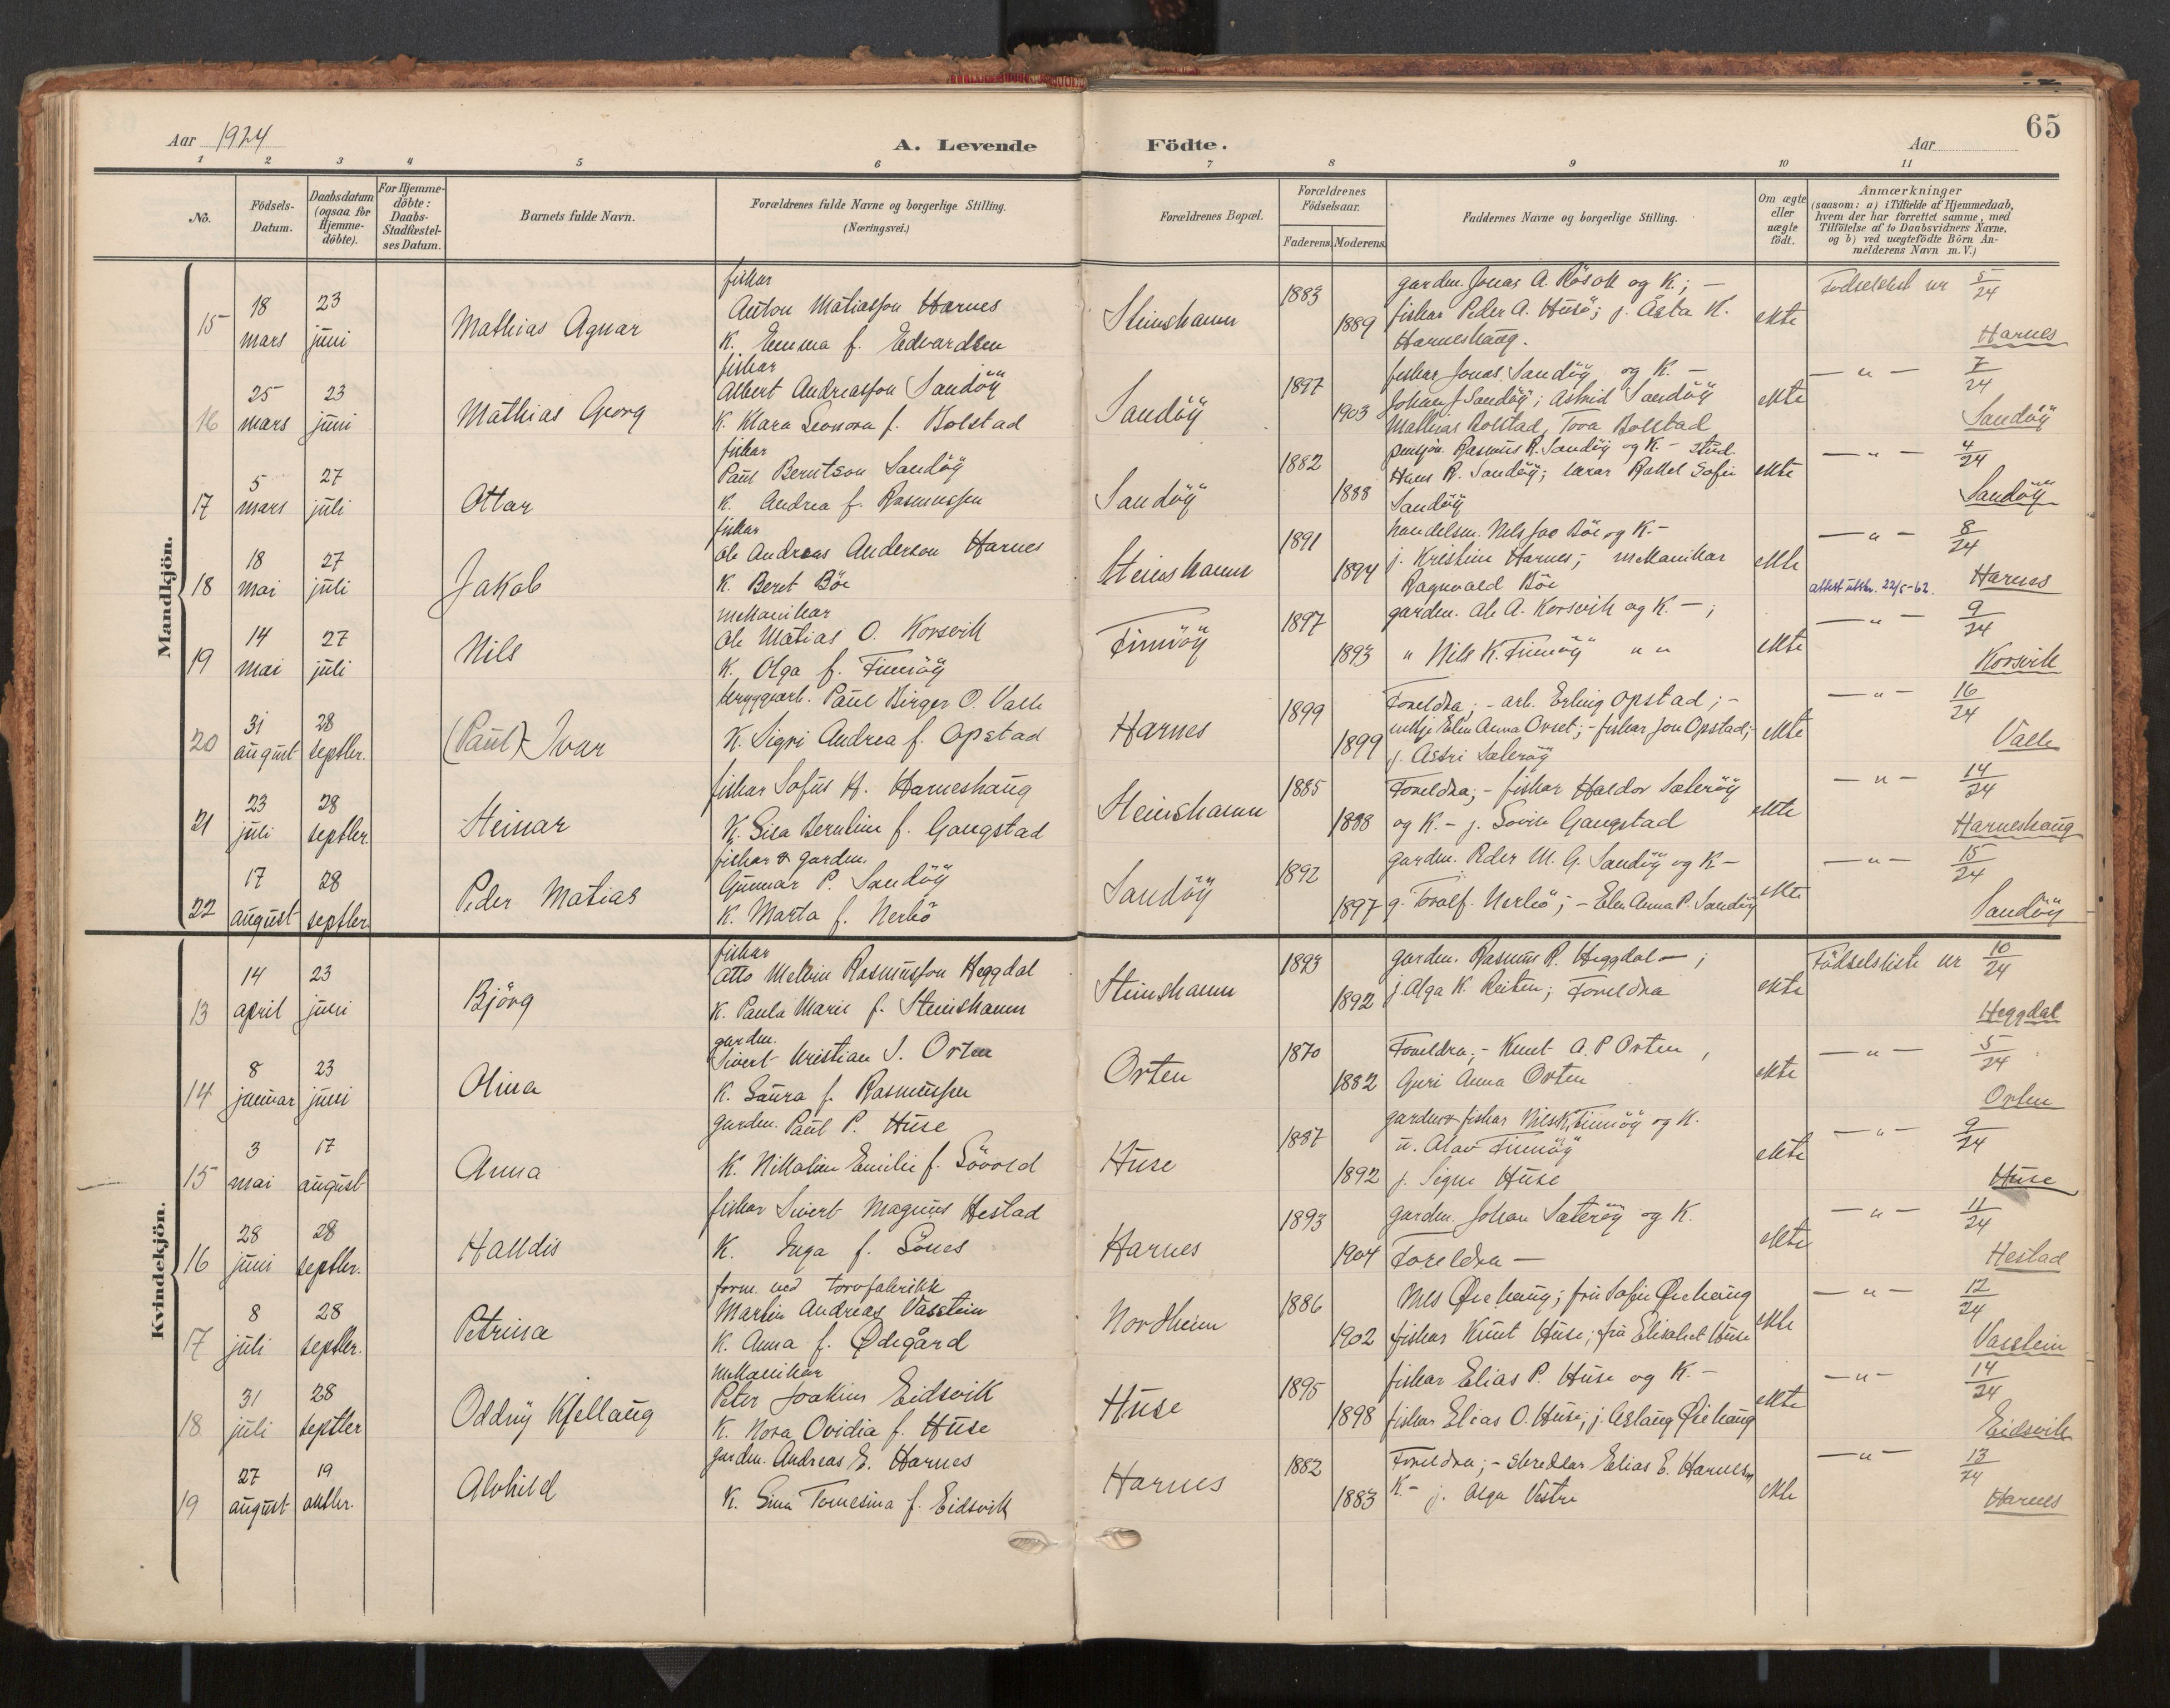 65
Aar 1924
A. Levende Födte.
Aar
1 2 3 4 5 6 7 8 9 10 11
No.
Födsels-Datum.
Daabsdatum (ogsaa for Hjemme-döbte).
For Hjemme-döbte: Daabs-Stadfæstel-ses Datum.
Barnets fulde Navn.
Forældrenes fulde Navne og borgerlige Stilling. (Næringsvei.)
Forældrenes Bopæl.
Forældrenes Födselsaar.
Faderens. Moderens.
Faddernes Navne og borgerlige Stilling.
Om ægte eller uægte födt.
Anmærkninger
(saasom: a) i Tilfælde af Hjemmedaab,
hvem der har forrettet samme, med
Tilföielse af to Daabsvidners Navne,
og b) ved uægtefödte Börn An-
melderens Navn m. V.)
Mandkjön.
15 18 mars 23 juni Mathias Agnar
fiskar
Anton Matiasson Harnes
K. Emma f. Edvardsen
Steinshamn 1883 1889
garden. Jonas A. Rösok og K.; —
fiskar Peder A. Husö; j. Åsta K.
Harneshaug.
ekte Fødselslist nr 5/24
Harnes
16 25 mars 23 juni Mathias Georg
fiskar
Albert Andreasson Sandöÿ
K. Klara Leonora f. Bolstad
Sandöÿ 1897 1903
fiskar Jonas Sandöÿ og K. —
Johan J Sandöÿ; Astrid Sandöÿ
Mathias Bolstad, Tora Bolstad
ekte — " — 7/24
Sandöÿ
17 5 mars 27 juli Ottar
fiskar
Paul Berntson Sandöÿ
K. Andrea f. Rasmussen
Sandöÿ 1882 1888
pensjon. Rasmus R. Sandöÿ og K. — stud.
Hans R. Sandöÿ; lærar Rakel Sofie
Sandöÿ
ekte — " — 4/24
Sandöÿ
18 18 mai 27 juli Jakob
fiskar
Ole Andreas Anderson Harnes
K. Beret Böe
Steinshamn 1891 1894
handelsm. Nils Böe og K —
j. Kristine Harnes; mekanikar
Ragnvald Böe
ekte — " — 8/24
Harnes
attest utskr. 22/5-62.
19 14 mai 27 juli Nils
mekanikar
Ole Matias O. Korsvik
K. Olga f. Finnöÿ
Finnöÿ 1897 1893
garden. Ole A. Korsvik og K. — ;
" Nils K. Finnöÿ " "
ekte — " — 9/24
Korsvik
20 31 august 28 septbr. (Paul) Ivar
bryggearb. Paul Birger O. Valle
K. Sigri Andrea f. Opstad
Harnes 1899 1899
Foreldra; — arb. Erling Opstad; —
enkje Elen Anna Orset; — fiskar Jon Opstad; —
j. Astri Sæteröÿ
ekte — " — 16/24
Valle
21 23 juli 28 septbr. Steinar
fiskar Sofus H. Harneshaug
K. Sisa Berntine f. Gangstad
Steinshamn 1885 1888
Foreldra; — fiskar Haldor Sæteröÿ
og K. — j. Lovise Gangstad
ekte — " — 14/24
Harneshaug
22 17 august 28 septbr. Peder Matias
fiskar & garden.
Gunnar P. Sandöÿ
K. Marta f. Nerbö
Sandöÿ 1892 1897
garden. Peder M. G. Sandöÿ og K —
g. Torolf. Nerbö; — Elen Anna P. Sandöÿ
ekte — " — 15/24
Sandöÿ
Kvindekjön.
13 14 april 23 juni Björg
fiskar
Otto Melvin Rasmusson Heggdal
K. Paula Marie f. Steinshamn
Steinshamn 1893 1892
garden. Rasmus R. Heggdal — ;
j. Olga K. Reiten; Foreldra
ekte Födselsliste nr 10/24
Heggdal
14 8 januar 23 juni Olina
garden.
Sivert Kristian S. Orten
K. Laura f. Rasmussen
Orten 1870 1882
Foreldra; — Knut A. P Orten,
Guri Anna Orten
ekte — " — 5/24
Orten
15 3 mai 17 august Anna
garden. Paul P. Huse
K. Nikoline Emilie f. Sövold
Huse 1887 1892
garden & fiskar Nils K. Finnöÿ og K.
u. Olav Finnöÿ
j. Signe Huse
ekte — " — 9/24
Huse
16 28 juni 28 septbr. Halldis
fiskar Sivert Magnus Hestad
K. Inga f. Sones
Harnes 1893 1904
garden. Johan Sæteröÿ og K.
Foreldra —
ekte — " — 11/24
Hestad
17 8 juli 28 septbr. Petrina
form. ved torvfabrikk
Martin Andreas Vasstein
K. Anna f. Ødegård
Nordheim 1886 1902
Nils Øiehaug; fru Sofie Øiehaug
fiskar Knut Huse; fru Elisabet Huse
ekte — " — 12/24
Vasstein
18 31 juli 28 septbr Oddnÿ Kjellaug
mekanikar
Peter Joakim Eidsvik
K. Nora Ovidia f. Huse
Huse 1895 1898
fiskar Elias P. Huse og K. —
fiskar Elias O. Huse; j. Aslaug Øiehaug
ekte — " — 14/24
Eidsvik
19 27 august 19 oktbr. Alvhild
garden. Andreas E. Harnes
K. Sina Tomesina f. Eidsvik
Harnes 1882 1883
Foreldra; — skreddar Elias E. Harnes
K — j. Olga Vestre
ekte — " — 13/24
Harnes